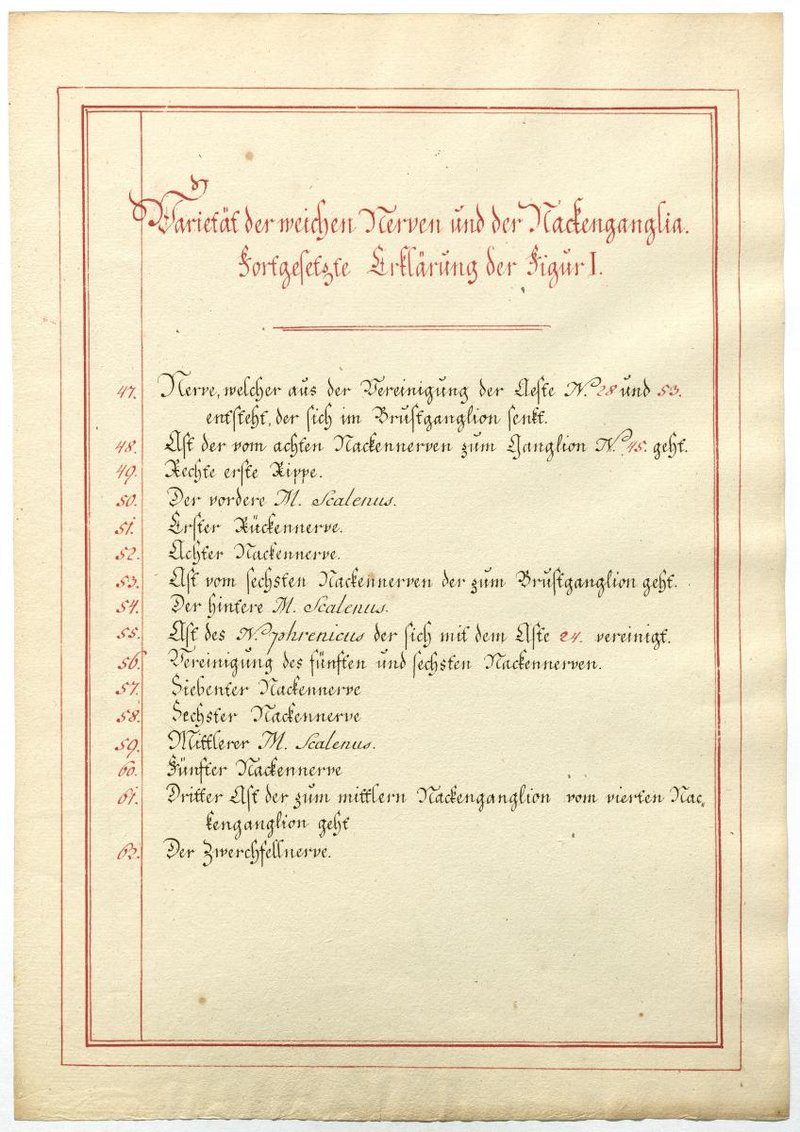 Varietät der weichen Nerven und der Nackenganglia.
Fortgesetzte Erklärung der Figur I.
47. Nerve, welcher aus der Vereinigung der Aeste N.º 28 und 53.
entsteht, der sich im Brustganglion senkt.
48. Ast der vom achten Nackennerven zum Ganglion N.º 45. geht.
49. Rechte erste Rippe.
50. Der vordere M. Scalenus.
51. Erster Rückennerve.
52. Achter Nackennerve.
53. Ast vom sechsten Nackennerven der zum Brustganglion geht.
54. Der hintere M. Scalenus.
55. Ast des N.º phrenicus der sich mit dem Aste 24. vereinigt.
56. Vereinigung des fünften und sechsten Nackennerven.
57. Siebenter Nackennerve
58. Sechster Nackennerve
59. Mittlerer M. Scalenus.
60. Fünfter Nackennerve
61. Dritter Ast der zum mittlern Nackenganglion vom vierten Nac⸗
kenganglion geht
62. Der Zwerchfellnerve.